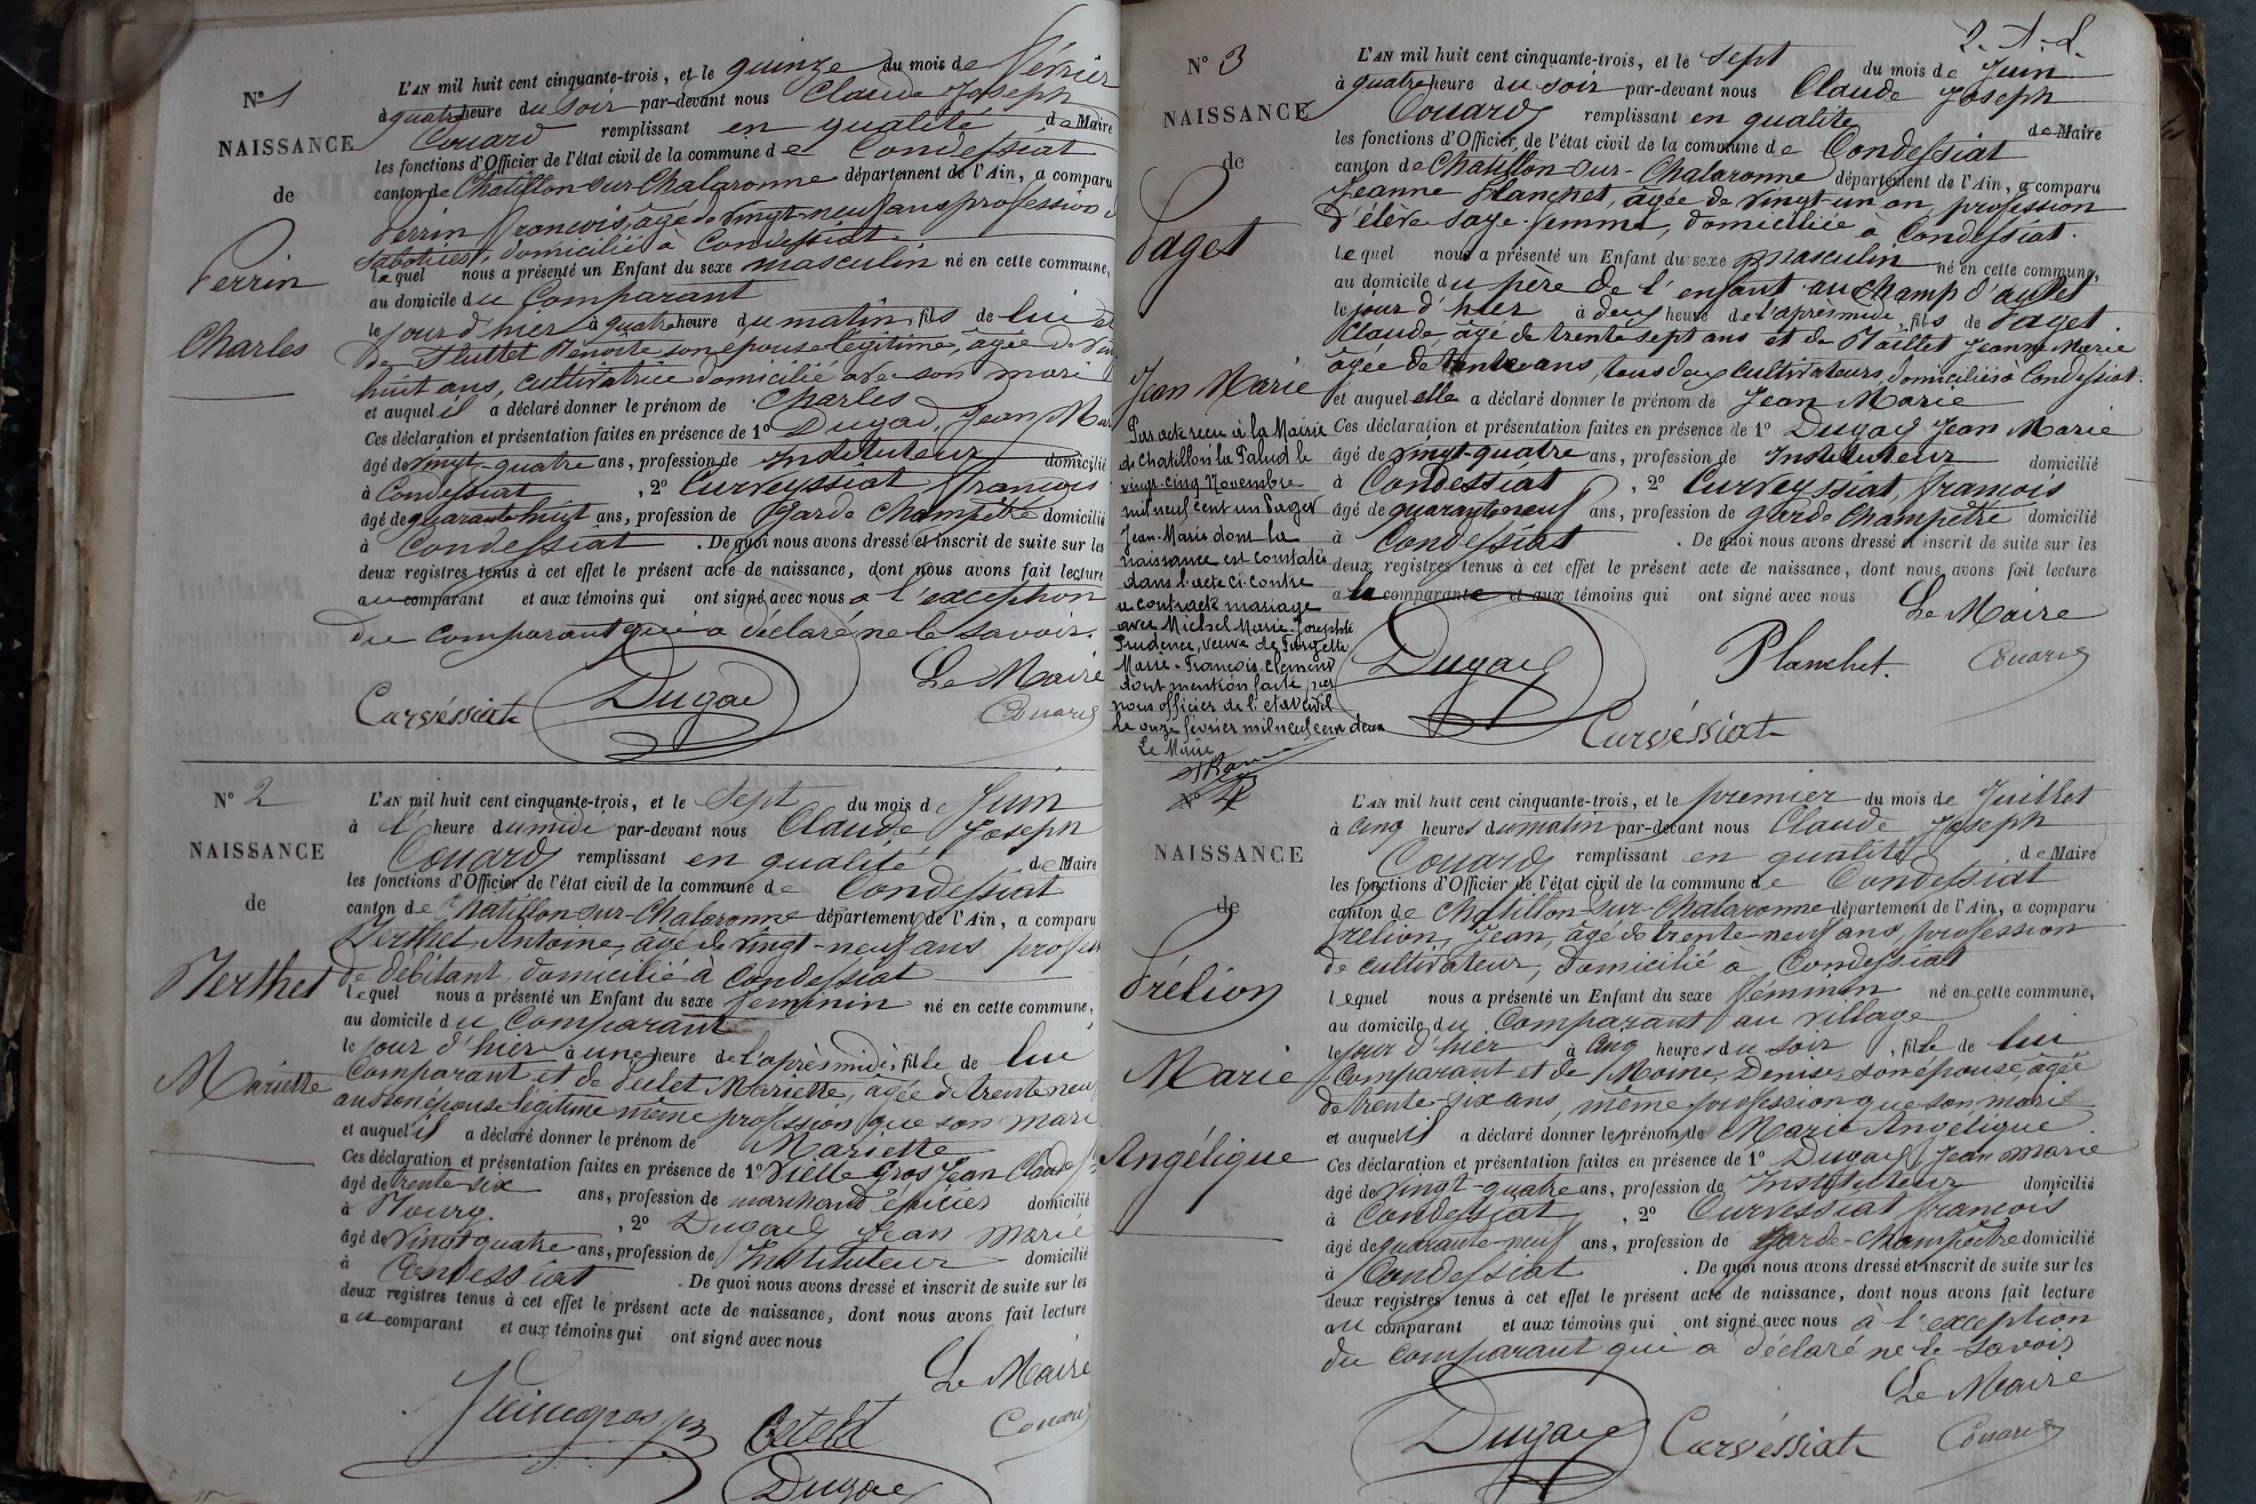 N° 1
NAISSANCE
de
Perrin
Charles
L'AN mil huit cent cinquante-trois, et le quinze du mois de Février
à quatre heure du soir par-devant nous Claude Joseph
Couard remplissant en qualité de Maire
les fonctions d'Officier de l'état civil de la commune de Condessiat
canton de Chatillon-sur-Chalaronne département de l'Ain, a comparu
Perrin François, âgé de vingt-neuf ans profession de
sabotier, domicilié à Condessiat
lequel nous a présenté un Enfant du sexe masculin né en cette commune,
au domicile du Comparant
le jour d'hier à quatre heure du matin, fils de lui et
de Benoite son épouse légitime, âgée de vingt
huit ans, cultivatrice domicilié avec son mari
et auquel il a déclaré donner le prénom de Charles
Ces déclaration et présentation faites en présence de 1° Dugad, Jean Mar
âgé de vingt-quatre ans, profession de Instituteur domicilié
à Condessiat , 2° Curveyssiat François
âgé de quarante huit ans, profession de Garde Champêtre domicilié
à Condessiat . De quoi nous avons dressé et inscrit de suite sur les
deux registres tenus à cet effet le présent acte de naissance, dont nous avons fait lecture
au comparant et aux témoins qui ont signé avec nous a l'exception
du comparant qui a déclaré ne le savoir.
Le Maire
Curvéssiat Dugad Couard
N° 2
NAISSANCE
de
Berthet
Mariette
L'AN mil huit cent cinquante-trois, et le Sept du mois de Juin
à l' heure du midi par-devant nous Claude Joseph
Couard remplissant en qualité de Maire
les fonctions d'Officier de l'état civil de la commune de Condessiat
canton de Chatillon-sur-Chalaronne département de l'Ain, a comparu
Berthet Antoine, âgé de vingt-neuf ans profession
de débitant, domicilié à Condessiat
lequel nous a présenté un Enfant du sexe féminin né en cette commune,
au domicile du Comparant
le jour d'hier à une heure de l'après midi, fille de lui
Comparant et de Mariette, âgée de trente neuf
ans son épouse légitime même profession que son mari
et auquel il a déclaré donner le prénom de Mariette
Ces déclaration et présentation faites en présence de 1° Gros Jean Claude
âgé de trente six ans, profession de marchand épicier domicilié
à Bourg , 2° Dugad Jean Marie
âgé de vingt quatre ans, profession de Instituteur domicilié
à Condessiat . De quoi nous avons dressé et inscrit de suite sur les
deux registres tenus à cet effet le présent acte de naissance, dont nous avons fait lecture
au comparant et aux témoins qui ont signé avec nous
Le Maire
Couard
Dugad
2. A. d.
N° 3
NAISSANCE
de
Paget
Jean Marie
Par acte reçu à la Mairie
de Chatillon la Palud le
vingt-cinq Novembre
mil neuf cent un Paget
Jean-Marie dont la
naissance est constatée
dans l'acte ci-contre
a contracté mariage
avec Michel Marie-Josephte
Prudence, veuve de
Marie-François Clément
dont mention faite par
nous officier de l'état civil
le onze février mil neuf cent deux
Le Maire
L'AN mil huit cent cinquante-trois, et le Sept du mois de Juin
à quatre heure du soir par-devant nous Claude Joseph
Couard remplissant en qualité de Maire
les fonctions d'Officier de l'état civil de la commune de Condessiat
canton de Chatillon-sur-Chalaronne département de l'Ain, a comparu
Jeanne Planchet, âgée de vingt-un an, profession
d'élève sage-femme, domiciliée à Condessiat.
lequel nous a présenté un Enfant du sexe masculin né en cette commune,
au domicile du père de l'enfant au Champ d'
le jour d'hier à deux heure de l'après midi, fils de Paget
Claude, âgé de trente sept ans et de Baillet Jeanne Marie
âgée de trente ans, tous deux cultivateurs, domiciliés à Condessiat.
et auquel elle a déclaré donner le prénom de Jean Marie
Ces déclaration et présentation faites en présence de 1° Dugad Jean Marie
âgé de vingt-quatre ans, profession de Instituteur domicilié
à Condessiat , 2° Curveyssiat, françois
âgé de quarante neuf ans, profession de garde Champêtre domicilié
à Condessiat . De quoi nous avons dressé et inscrit de suite sur les
deux registres tenus à cet effet le présent acte de naissance, dont nous avons fait lecture
a la comparante et aux témoins qui ont signé avec nous
Le Maire
Dugad Planchet. Couard
Curvéssiat
N° 4
NAISSANCE
de
Frélion
Marie
Angélique
L'AN mil huit cent cinquante-trois, et le premier du mois de Juillet
à Cinq heures du matin par-devant nous Claude Joseph
Couard remplissant en qualité de Maire
les fonctions d'Officier de l'état civil de la commune de Condessiat
canton de Chatillon-sur-Chalaronne département de l'Ain, a comparu
frelion, Jean, âgé de trente neuf ans, profession
de cultivateur, domicilié à Condessiat
lequel nous a présenté un Enfant du sexe féminin né en cette commune,
au domicile du Comparant au village
le jour d'hier à Cinq heures du soir , fille de lui
Comparant et de Moine, Denise, son épouse, âgée
de trente-six ans, même profession que son mari
et auquel il a déclaré donner le prénom de Marie Angélique
Ces déclaration et présentation faites en présence de 1° Dugad, Jean marie
âgé de vingt-quatre ans, profession de Instituteur domicilié
à Condessiat , 2° Curvessiat françois
âgé de quarante-neuf ans, profession de garde-Champêtre domicilié
à Condessiat . De quoi nous avons dressé et inscrit de suite sur les
deux registres tenus à cet effet le présent acte de naissance, dont nous avons fait lecture
au comparant et aux témoins qui ont signé avec nous à l'exception
du comparant qui a déclaré ne le savoir
Le Maire
Dugad Curvéssiat Couard